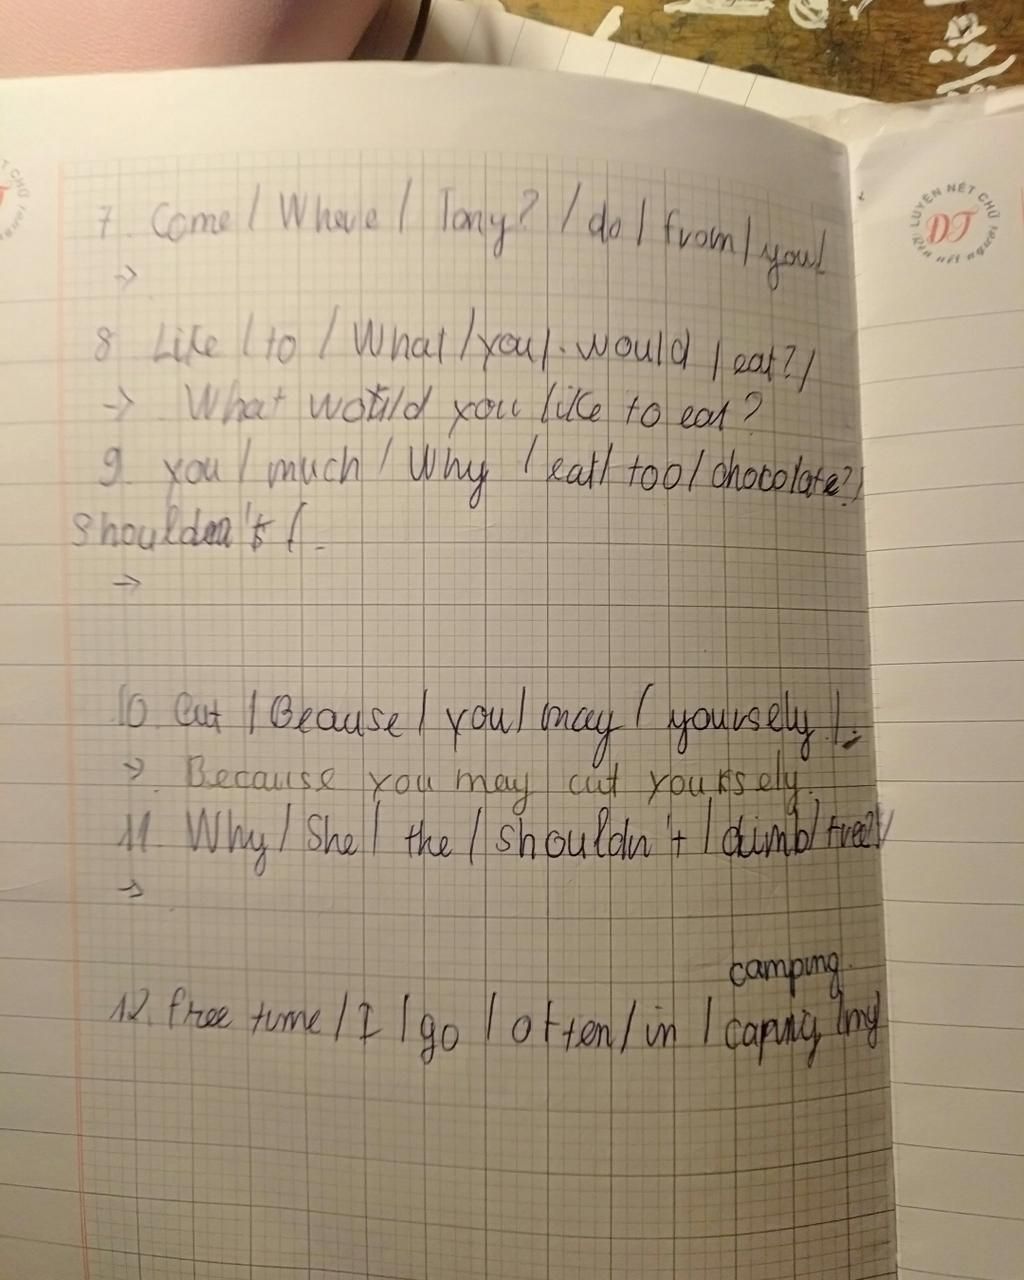 7. Come / Where / Tony? / do / from / you/
->
8 Like / to / What / you /. would / eat? /
-> What would you like to eat?
9. you / much / Why / eat / too / chocolate? /
shouldn't / .
->
10. Cut / Beause / you / may / yoursely / .
-> Because you may cut yoursely.
11 Why / She / the / shouldn't / climb / tree? /
->
camping
12. free time / I / go / often / in / caping / my
LUYỆN NÉT CHỮ
DT
Rèn nết người